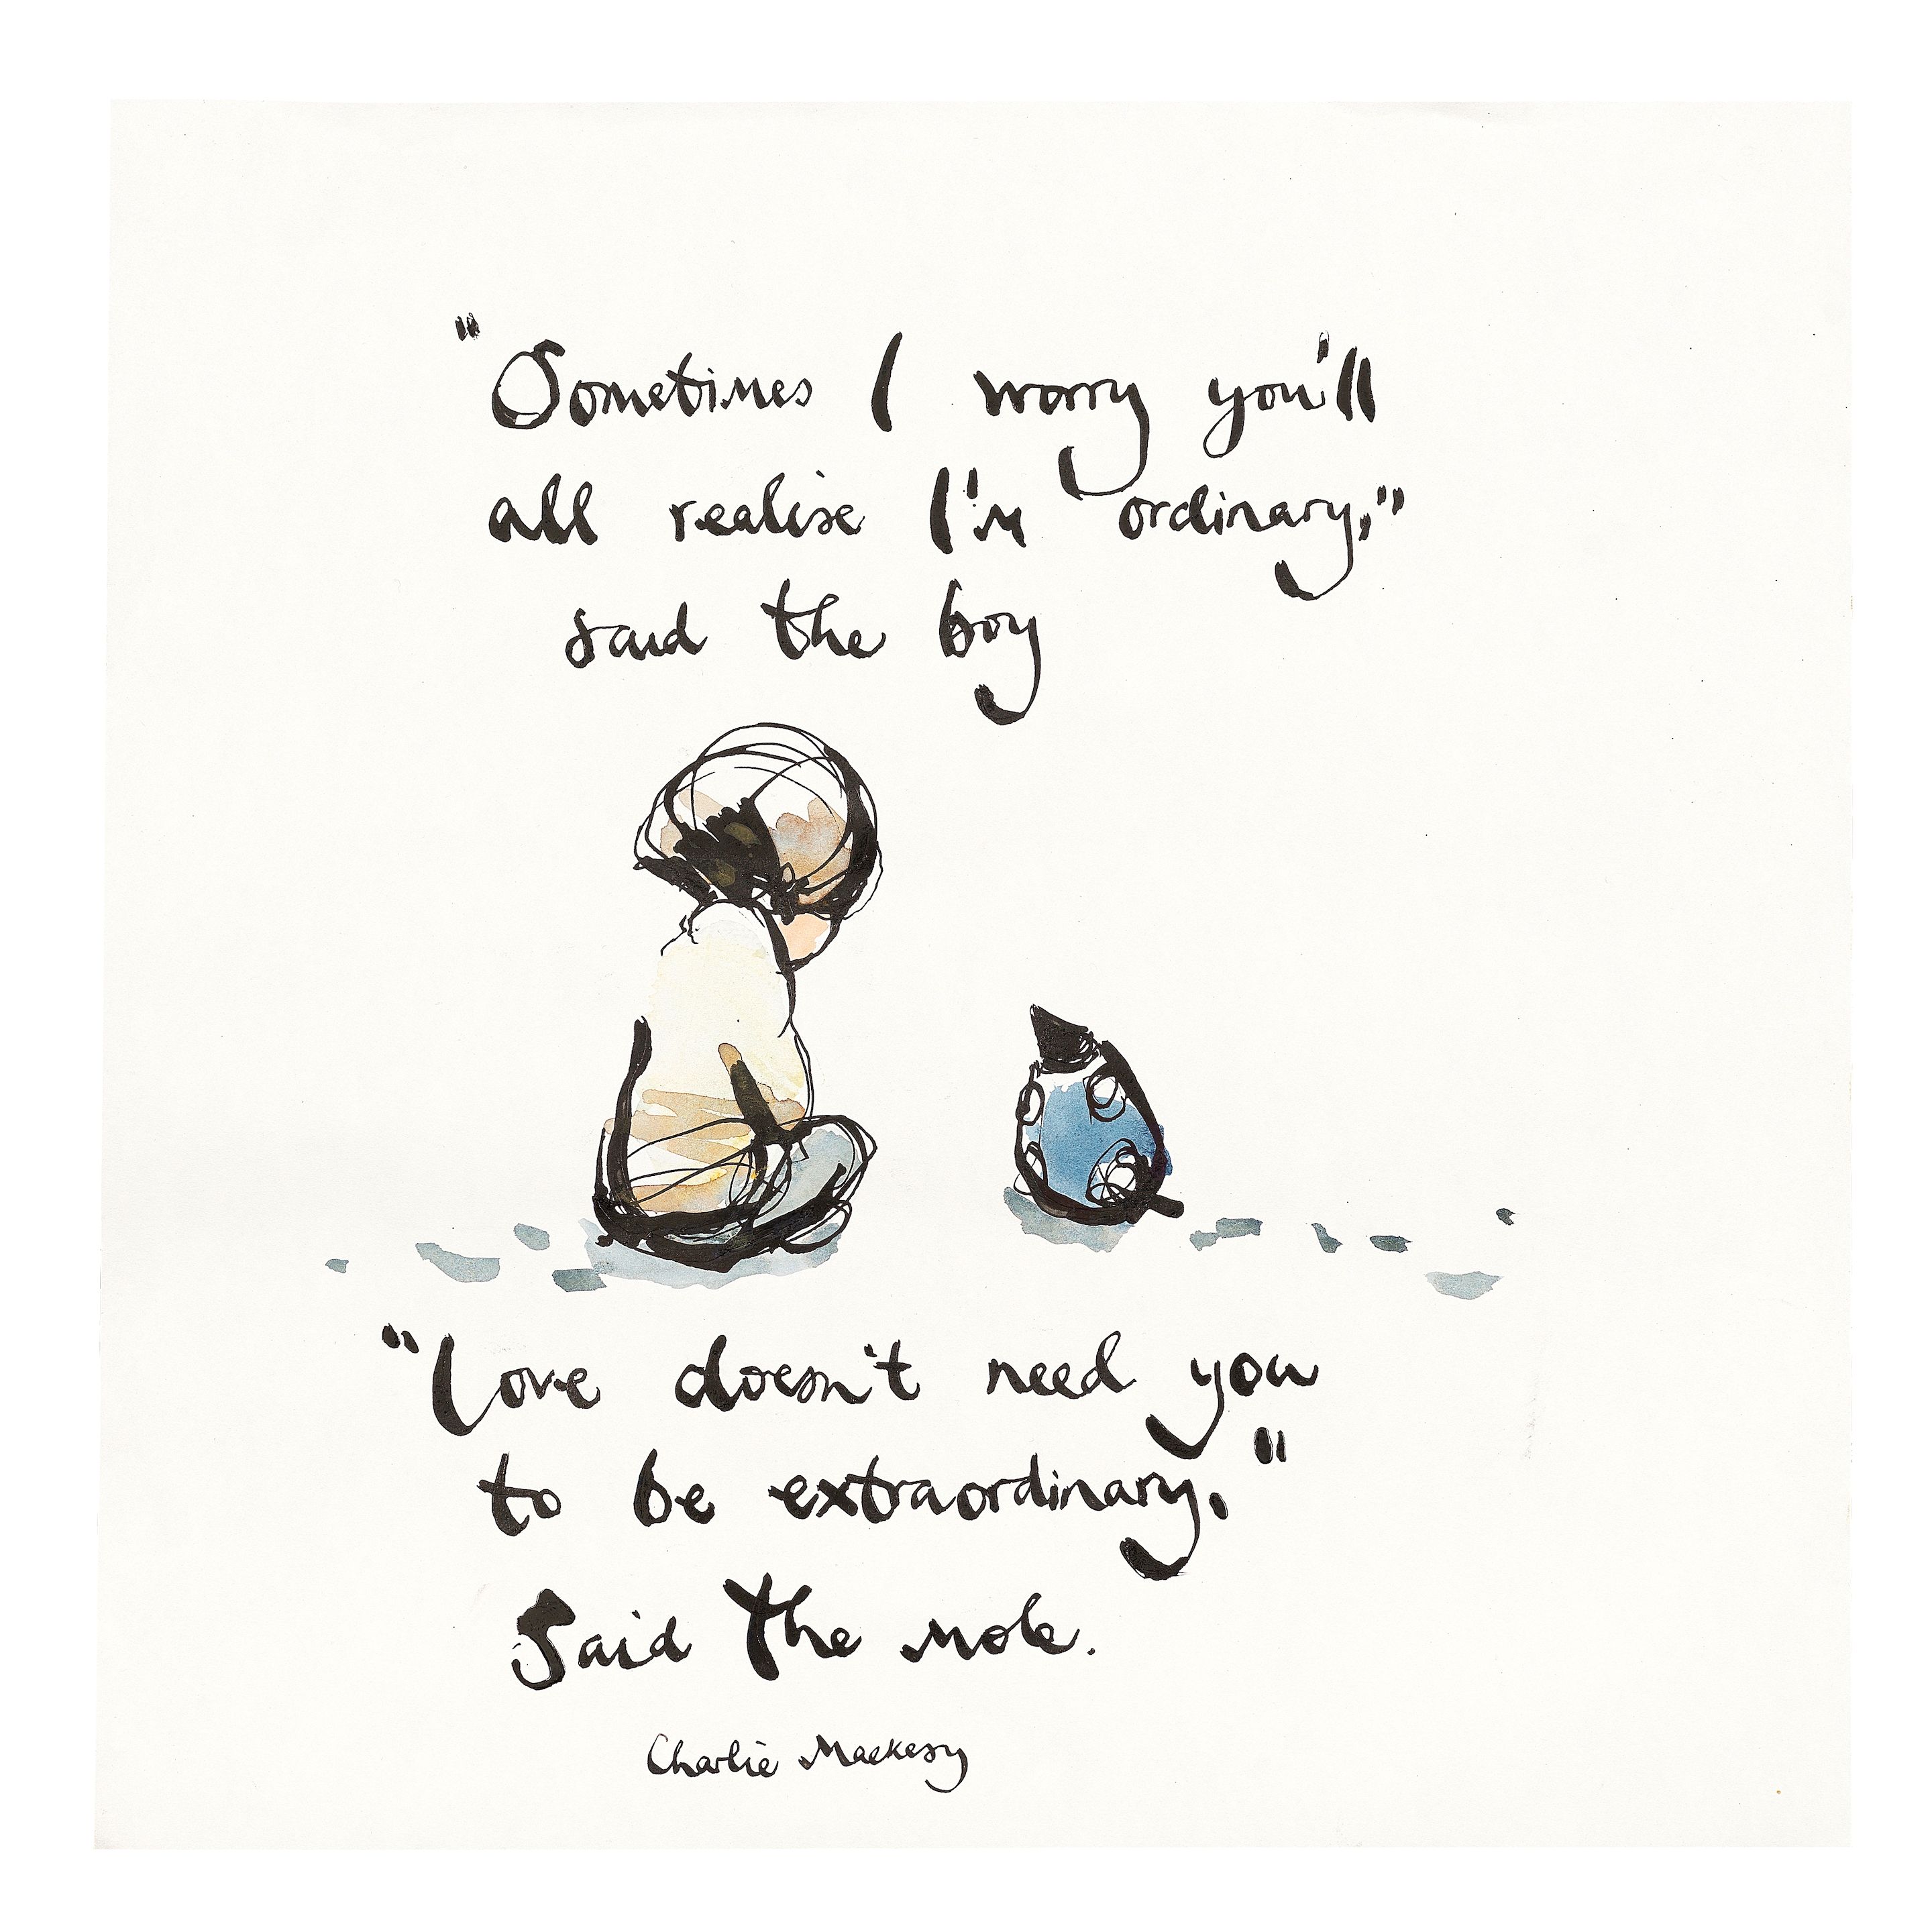 "Sometimes I worry you'll
all realise I'm ordinary,"
said the boy
"Love doesn't need you
to be extraordinary,"
Said the mole.
Charlie Mackesy